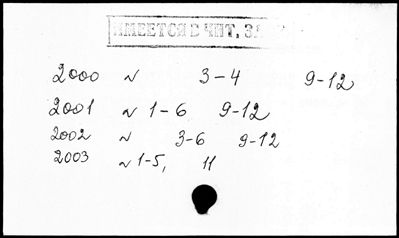 ИМЕЕТСЯ В ЧИТ. ЗА
2000 N 3-4 9-12
2001 N 1-6 9-12
2002 N 3-6 9-12
2003 N 1-5, 11